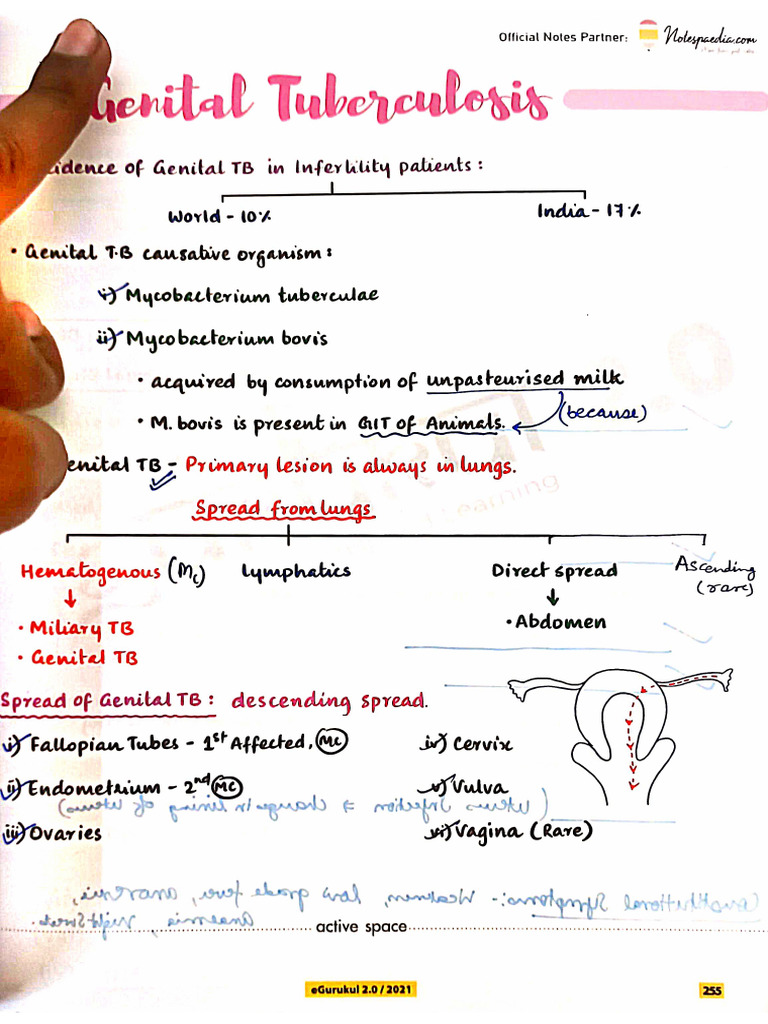 Official Notes Partner: Notespaedia.com
Genital Tuberculosis
idence of Genital TB in Infertility patients :
World - 10%
India - 17%
• Genital T.B causative organism :
i) Mycobacterium tuberculae
ii) Mycobacterium bovis
• acquired by consumption of unpasteurised milk
• M. bovis is present in GIT of Animals. (because)
enital TB - Primary lesion is always in lungs.
Spread from lungs
Hematogenous (Mc) Lymphatics Direct spread Ascending
(rare)
• Miliary TB
• Abdomen
• Genital TB
Spread of Genital TB : descending spread.
i) Fallopian Tubes - 1st Affected, MC
iv) Cervix
ii) Endometrium - 2nd MC
v) Vulva
iii) Ovaries
vi) Vagina (Rare)
active space
eGurukul 2.0 / 2021
255